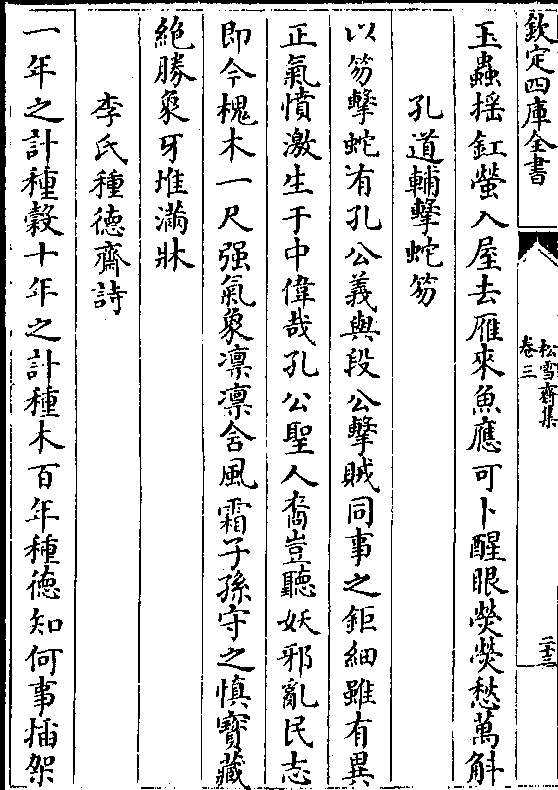 欽定四庫全書
松雪齋集
卷三
二十三
玉蟲揺釭螢入屋去雁來魚應可卜醒眼熒熒愁萬斛
孔道輔擊蛇笏
以笏擊蛇有孔公義與段公擊賊同事之鉅細雖有異
正氣憤激生于中偉哉孔公聖人裔豈聽妖邪亂民志
即今槐木一尺强氣象凛凛含風霜子孫守之慎寳藏
絶勝象牙堆滿牀
李氏種德齋詩
一年之計種穀十年之計種木百年種徳知何事插架